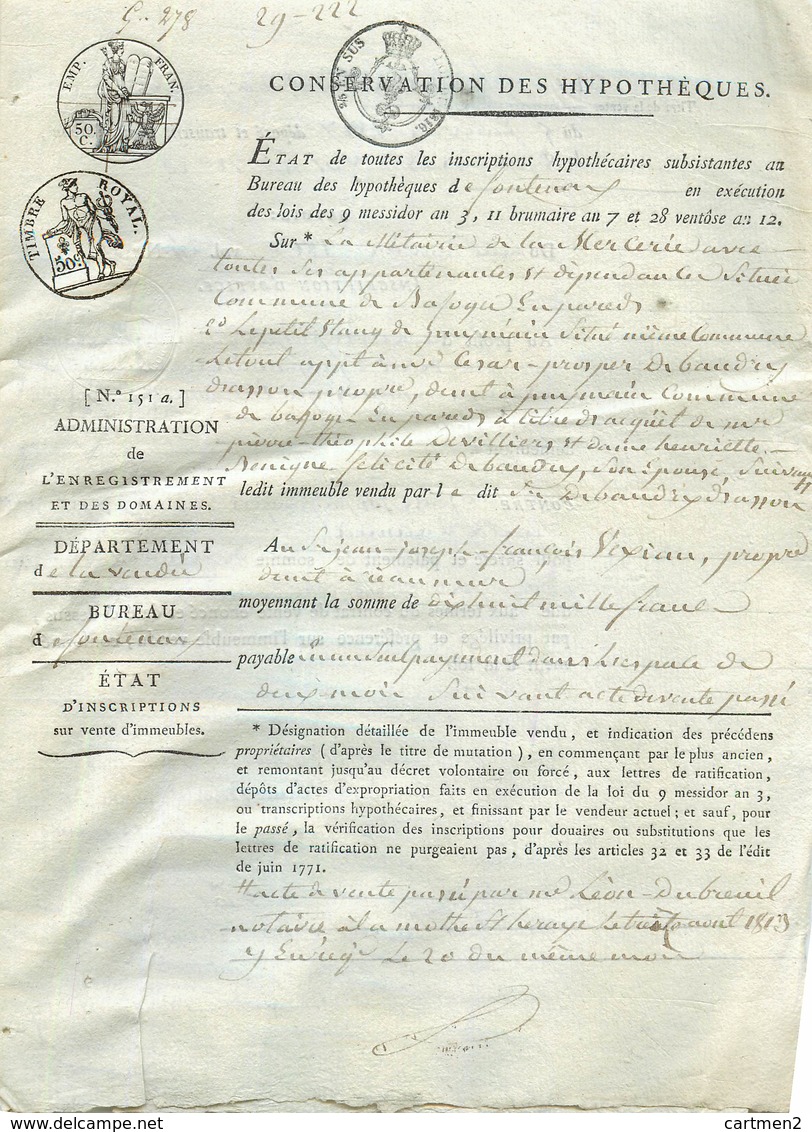 G. 278 29-222
EMP. FRAN.
50.
C.
25 EN SUS
1816.
TIMBRE ROYAL.
50c
CONSERVATION DES HYPOTHÈQUES.
ÉTAT de toutes les inscriptions hypothécaires subsistantes au
Bureau des hypothèques de fontenay en exécution
des lois des 9 messidor an 3, 11 brumaire an 7 et 28 ventôse an 12.
Sur * La Métairie de la Mercerie avec
toutes ses appartenantes et dépendances située
Commune de Bazoges En pareds
2o Le petit Etang de puymain situé même Commune
Letout appt à mr Cesar-prosper Debaudry
dasson propre, demt à puymain Commune
de bazoges En pareds à titre dacquêt de mr
pierre-théophile Devilliers et dame henriette
Benigne félicité Debaudry, son épouse suivant
ledit immeuble vendu par le dit Sr Debaudry dasson
Au Sr jean-joseph-françois Vexiau, propre
demt à reaumur
moyennant la somme de dixhuit mille francs
payable en un seul payement dans l'espace de
deux mois suivant acte de vente passé
[ N.º 151 a. ]
ADMINISTRATION
de
L'ENREGISTREMENT
ET DES DOMAINES.
DÉPARTEMENT
de la vendée
BUREAU
de fontenay
ÉTAT
D'INSCRIPTIONS
sur vente d'immeubles.
* Désignation détaillée de l'immeuble vendu, et indication des précédens
propriétaires ( d'après le titre de mutation ), en commençant par le plus ancien,
et remontant jusqu'au décret volontaire ou forcé, aux lettres de ratification,
dépôts d'actes d'expropriation faits en exécution de la loi du 9 messidor an 3,
ou transcriptions hypothécaires, et finissant par le vendeur actuel ; et sauf, pour
le passé, la vérification des inscriptions pour douaires ou substitutions que les
lettres de ratification ne purgeaient pas, d'après les articles 32 et 33 de l'édit
de juin 1771.
acte de vente passé par me Léon-Dubreuil
notaire à la mothe St heraye le avril 1813
y Enreg. Le 20 du même mois
cartmen2